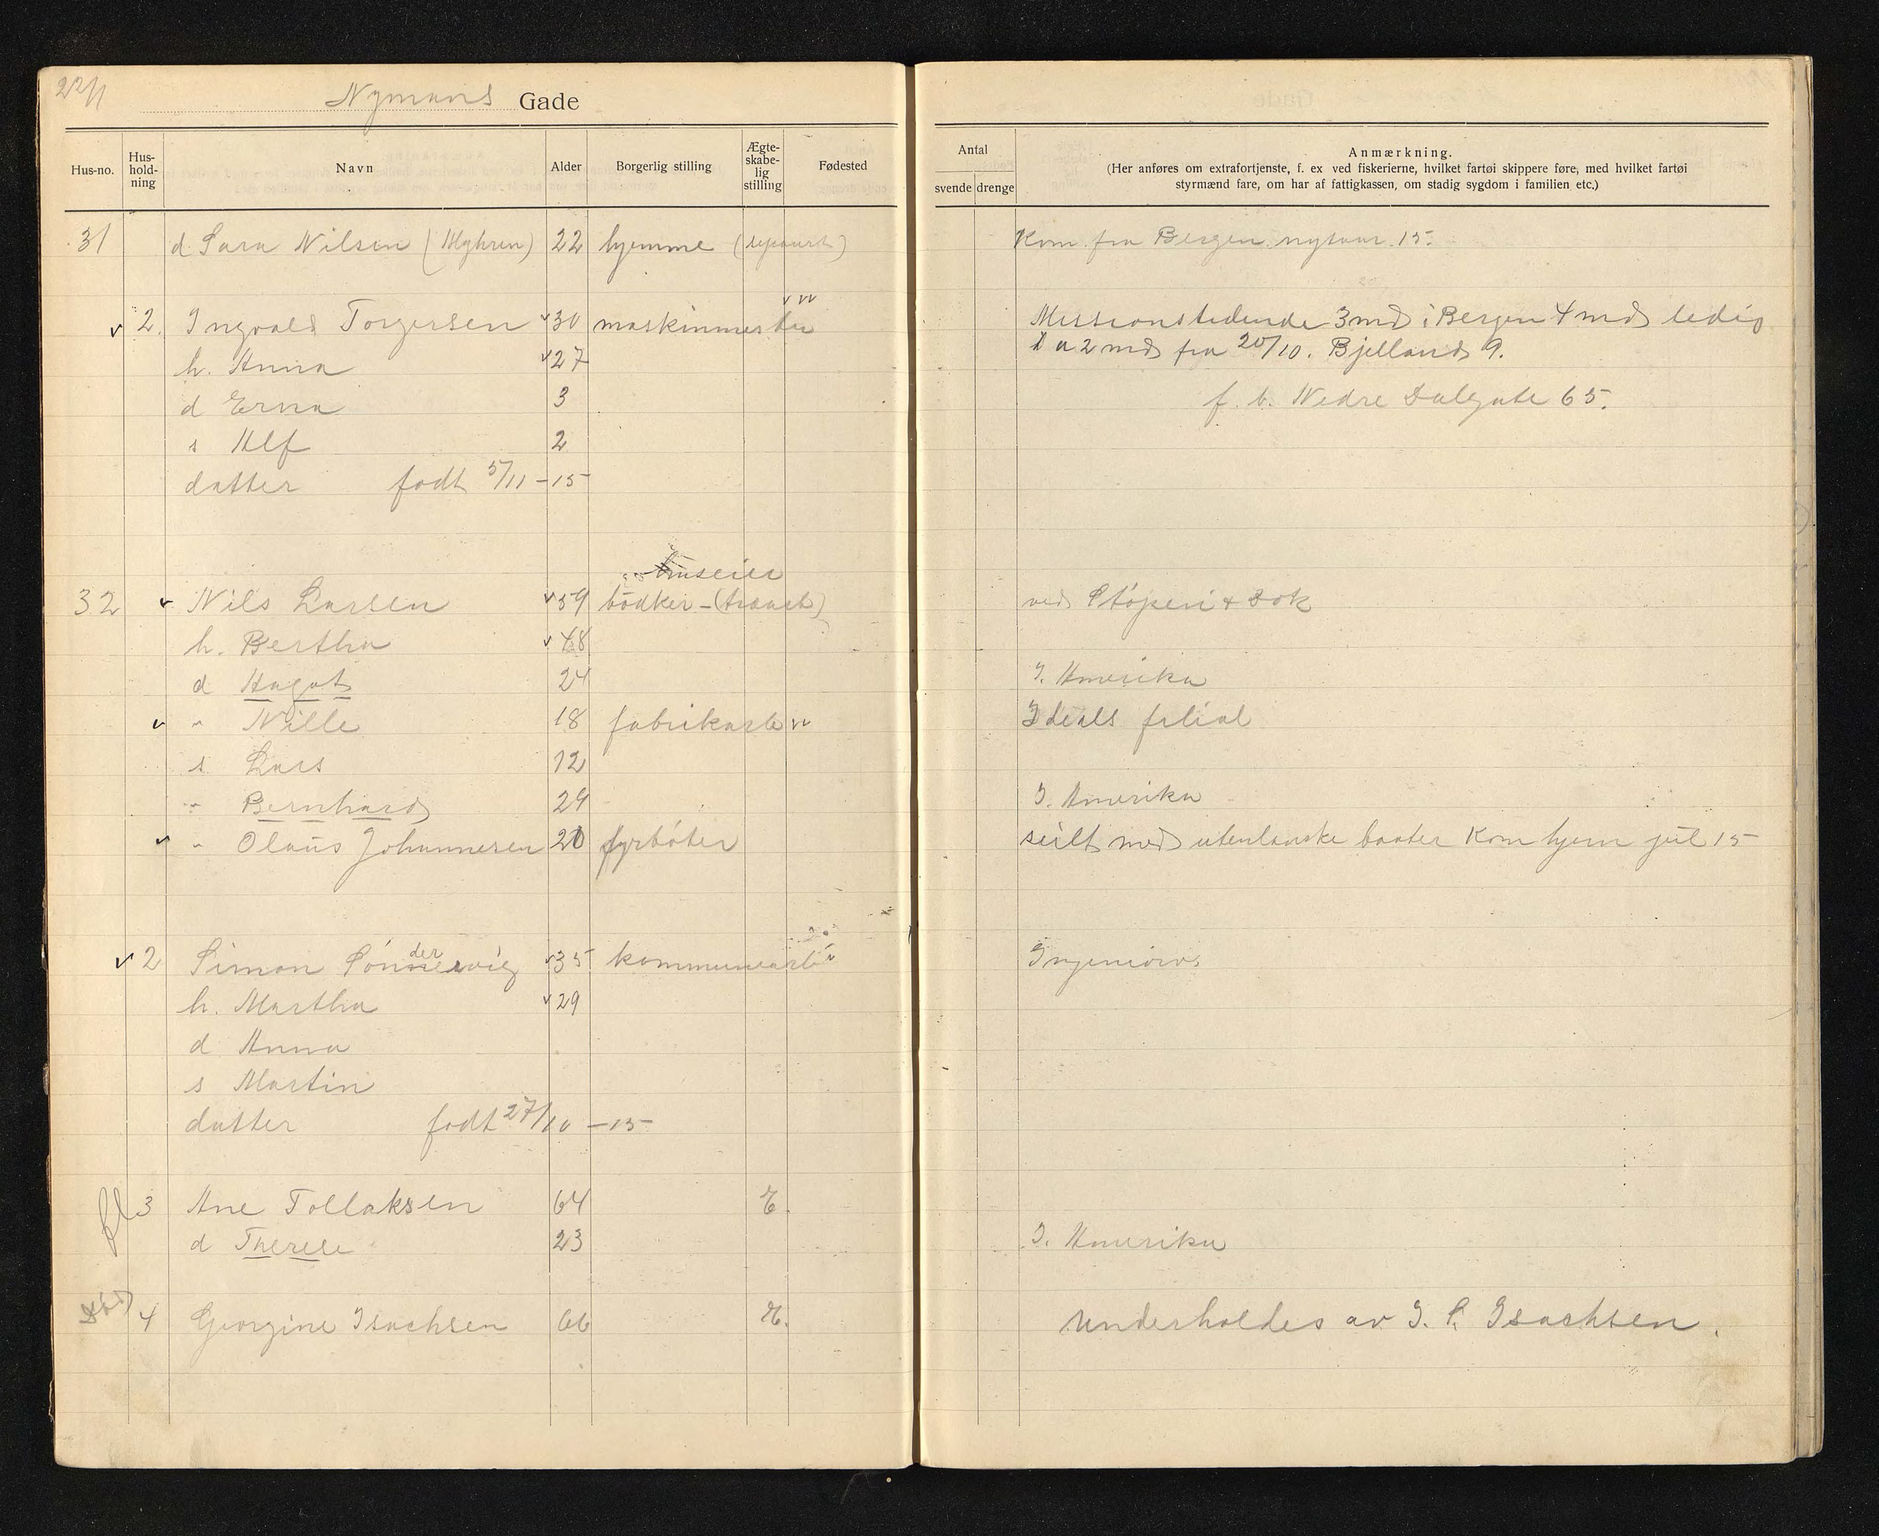 22/1
Nymans Gade
Hus-no. Hus-hold-ning Navn Alder Borgerlig stilling Ægte-skabe-lig stilling Fødested
Antal svende drenge
Anmærkning.
(Her anføres om extrafortjenste, f. ex ved fiskerierne, hvilket fartøi skippere føre, med hvilket fartøi
styrmænd fare, om har af fattigkassen, om stadig sygdom i familien etc.)
31 d Sara Nilsen (Myhren) 22 hjemme Kom fra Bergen nytaar 15.
2. Ingvald Torgersen 30 maskinmester 3 md i Bergen 4 md ledig
h. Anna 27 2 md fra 20/10. Bjellands 9.
d Erna 3 f. b. Nedre Dalgate 65.
s Alf 2
datter født 5/11 - 15
huseier
32 Nils Larsen 59 bødker - ved Støperi & Dok
h. Bertha 48
d Hagot 24 I. Amerika
" Nille 18 fabrikarb Ideals filial
s. Lars 12
" Bernhard 24 I. Amerika
" Olaus Johannesen 20 fyrbøter seilt med utenlanske baater Kom hjem jul 15
2 Simon Søndervig 35 kommunearb Ingeniørv.
h. Martha 29
d Anna
s Martin
datter født 27/10 - 15
fl 3 Ane Tollaksen 64 E.
d Therese 23 I. Amerika
Død 4 Georgine Isachsen 66 E. Underholdes av I. S. Isachsen.